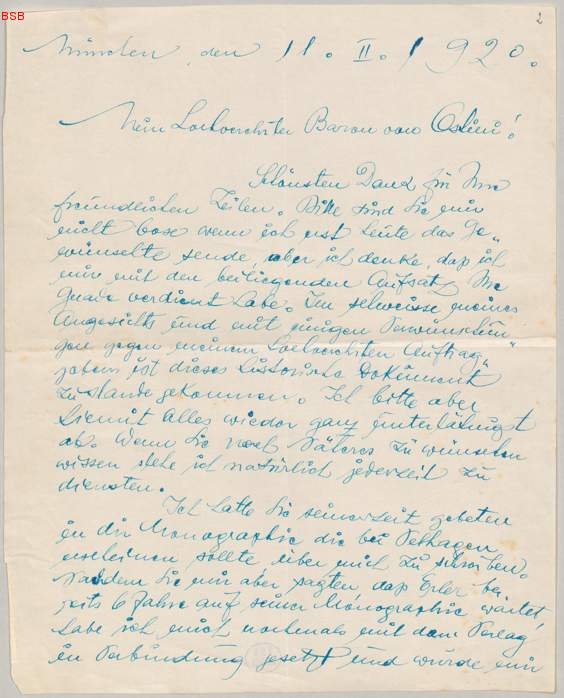 BSB
2
München, den 11. II. 1920.
Mein Hochverehrter Baron von Ostini!
Schönsten Dank für Ihre
freundlichen Zeilen. Bitte sind Sie mir
nicht böse wenn ich erst heute das Ge„
wünschte sende, aber ich denke, daß ich
mir mit den beiliegenden Aufsatz Ihre
Gnade verdient habe. Im schweisse meines
Angesichts und mit einigen Verwünschun
gen gegen meinen Hochverehrten Auftrag„
gebers ist dieses historische Dokument
zu stande gekommen. Ich bitte aber
hiemit Alles wieder ganz unterthänigst
ab. Wenn Sie noch Näheres zu wünschen
wissen stehe ich natürlich jederzeit zu
diensten.
Ich hatte Sie seinerzeit gebeten
in der Monographie die bei Velhagen
erscheinen sollte über mich zu schreiben.
Nachdem Sie mir aber sagten daß Erler be„
reits 6 Jahre auf seiner Monographie wartet,
habe ich mich nochmals mit dem Verlag
in Verbindung gesetzt und wurde mir